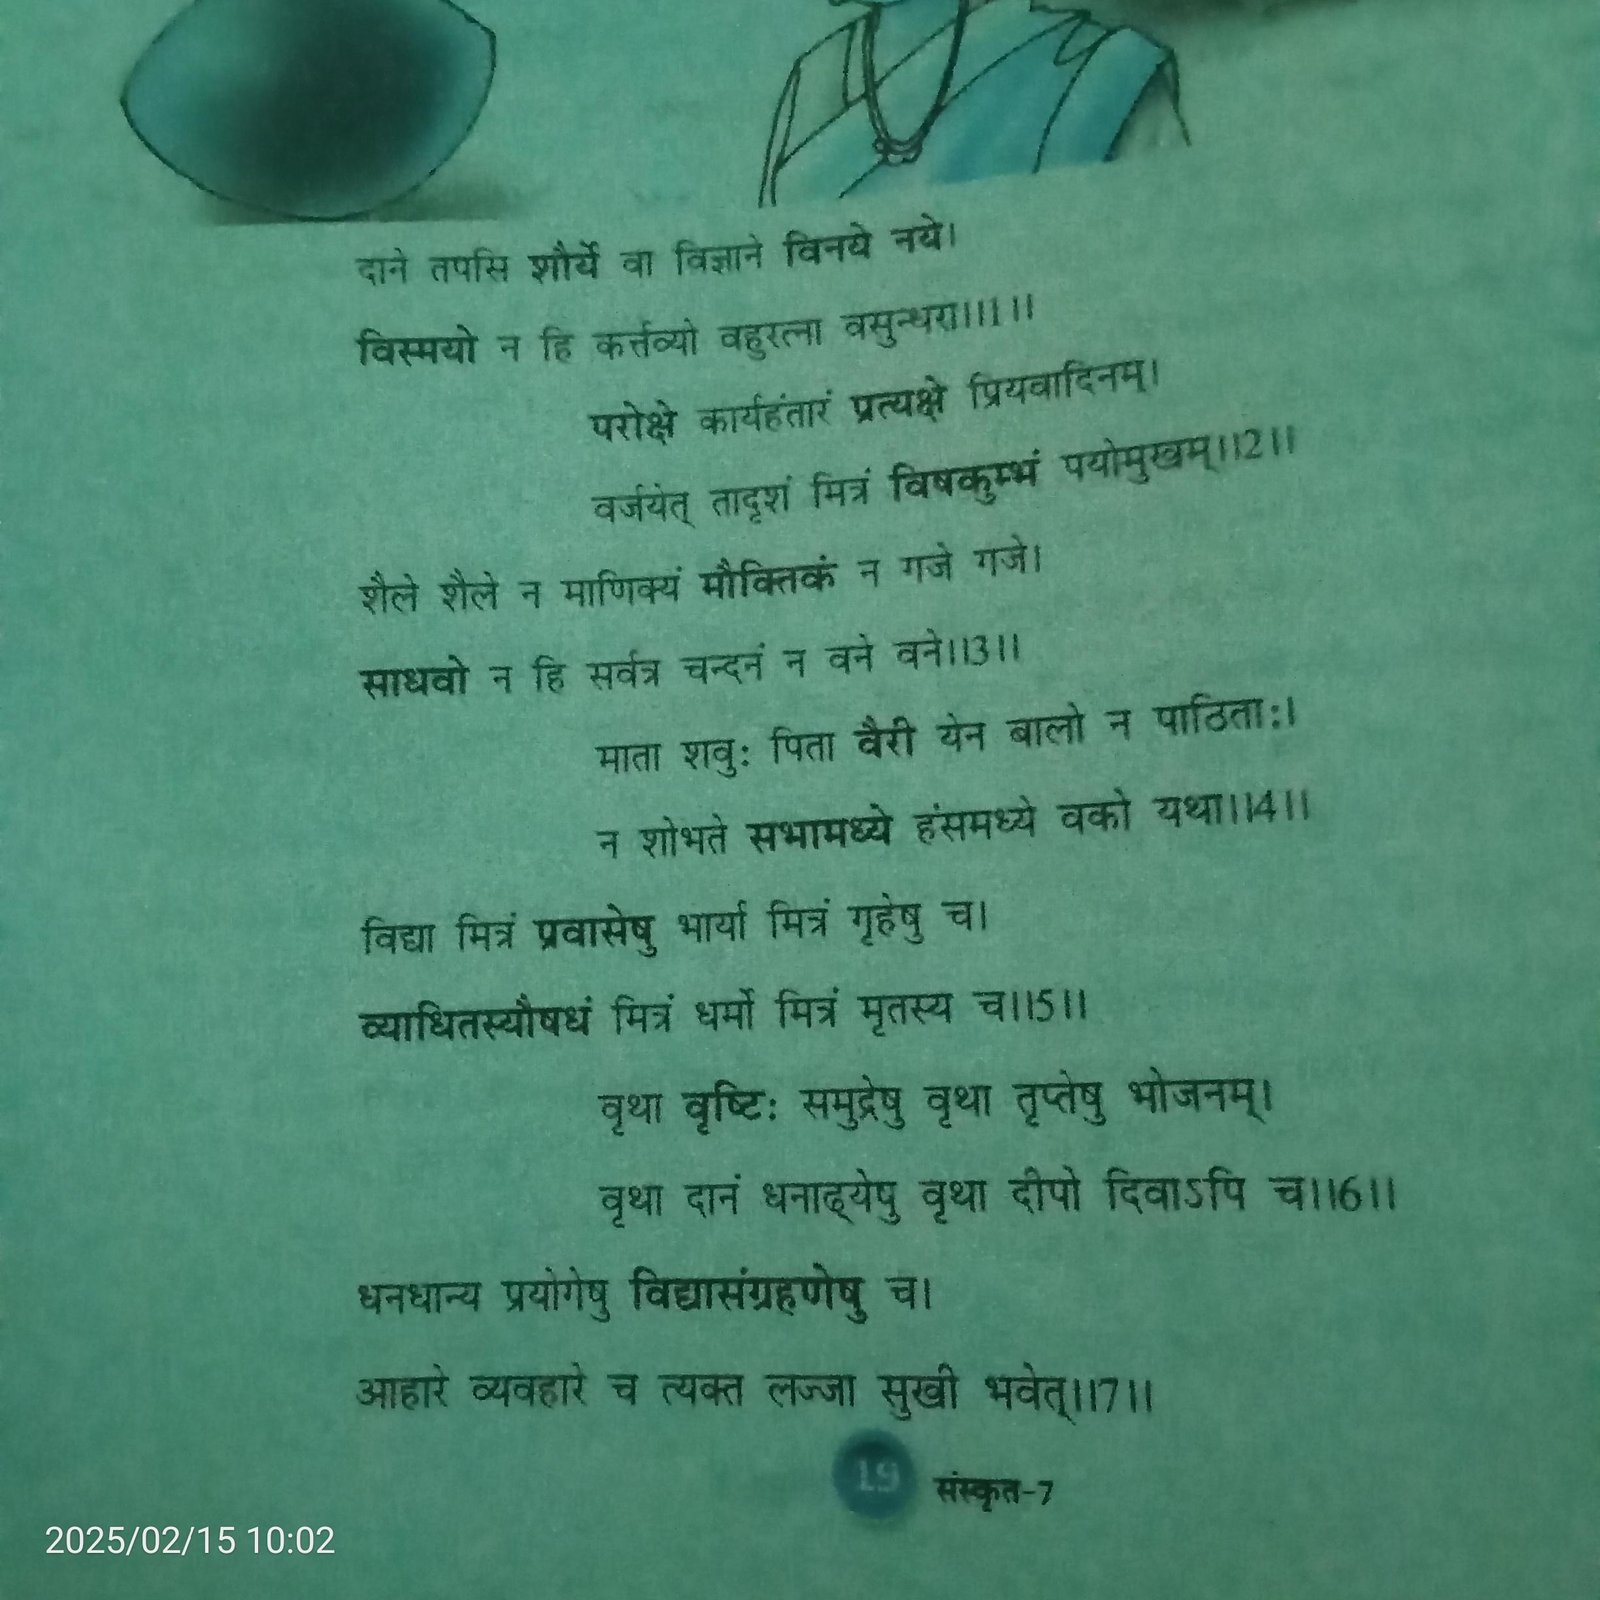 दाने तपसि शौर्ये वा विज्ञाने विनये नये।
विस्मयो न हि कर्त्तव्यो वहुरत्ना वसुन्धरा।।1।।
परोक्षे कार्यहंतारं प्रत्यक्षे प्रियवादिनम्।
वर्जयेत् तादृशं मित्रं विषकुम्भं पयोमुखम्।।2।।
शैले शैले न माणिक्यं मौक्तिकं न गजे गजे।
साधवो न हि सर्वत्र चन्दनं न वने वने।।3।।
माता शवुः पिता वैरी येन बालो न पाठिताः।
न शोभते सभामध्ये हंसमध्ये वको यथा।।4।।
विद्या मित्रं प्रवासेषु भार्या मित्रं गृहेषु च।
व्याधितस्यौषधं मित्रं धर्मो मित्रं मृतस्य च।।5।।
वृथा वृष्टिः समुद्रेषु वृथा तृप्तेषु भोजनम्।
वृथा दानं धनाढ्येषु वृथा दीपो दिवाऽपि च।।6।।
धनधान्य प्रयोगेषु विद्यासंग्रहणेषु च।
आहारे व्यवहारे च त्यक्त लज्जा सुखी भवेत्।।7।।
19 संस्कृत-7
2025/02/15 10:02